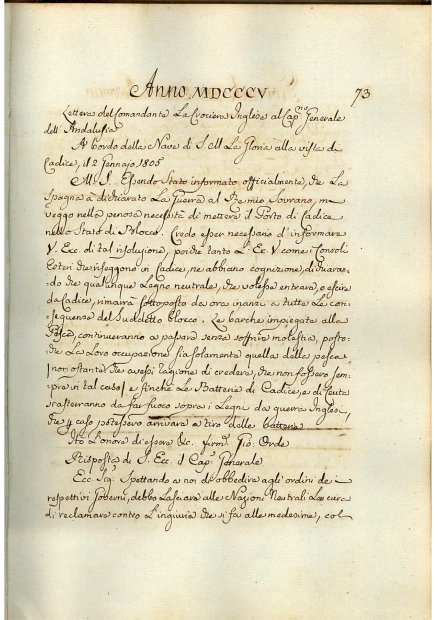 Anno MDCCCV 73
Lettera del Comandante La Crociera Inglese al Cap.no Generale
dell' Andalusia
A bordo della Nave di S. M La Gloria alla vista di
Cadice, il 2 Gennajo 1805
M. S. Essendo Stato informato officialmente, che La
Spagna à dichiarato La guerra al Re mio Sovrano, mi
veggo nella penosa necessità di mettere il Porto di Cadice
nello Stato di Blocco. Credo esser necessario d'informare
V. Ecc. di tal risoluzione, perche tanto L'Ec V. come i Consoli
Esteri che risseggono in Cadice, ne abbiano cognizione, dichiaran-
do che qualunque Legno neutrale, che volesse entrare, o escire
da Cadice, rimarrà sottoposto da ora inanzi a tutte Le con-
sequenze del Suddetto blocco. Le barche impiegate alla
Pesca, continueranno a passare senza soffrire molestia, posto-
che La Loro occupazione sia solamente quella della pesca
(non ostante che avessi ragione di credere, che non fossero sem-
pre in tal caso) e Anche Le Batterie di Cadice, e di
resteranno da far fuoco sopra i Legni da guerra Inglesi,
che p caso potessero arrivare a tiro delle batterie
Ho L'onore di essere &c. firm. Gio. Orde
Risposta di S. Ecc. il Cap. Generale
Ecc. Sig. Spettando a noi di obbedire agli ordini dei
respettivi Governi, debbo Lasciare alle Nazioni Neutrali La cura
di reclamare contro L'ingiuria che si fa alle medesime, col